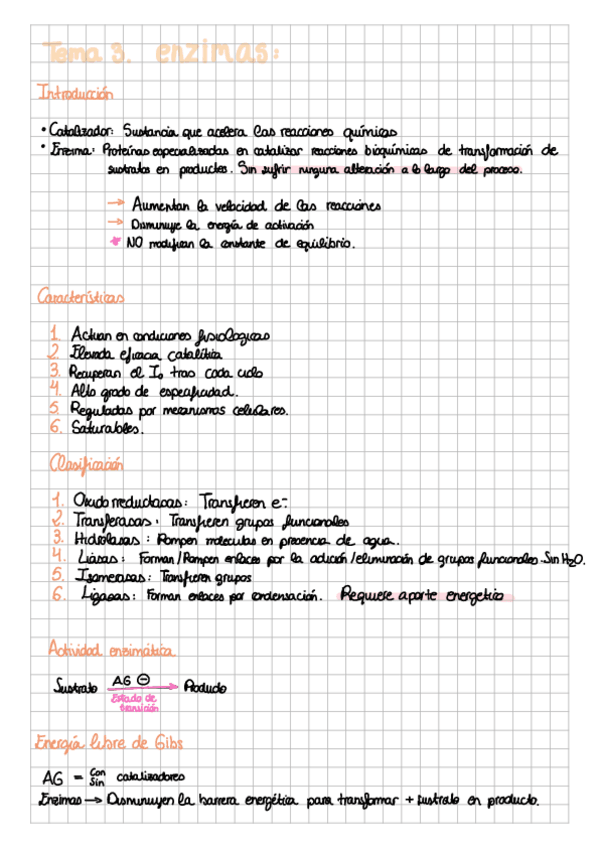 Tema 3. enzimas:
Introducción
• Catalizador: Sustancia que acelera las reacciones químicas
• Enzima: Proteínas especializadas en catalizar reacciones bioquímicas de transformación de
sustratos en productos. Sin sufrir ninguna alteración a lo largo del proceso.
→ Aumentan la velocidad de las reacciones
→ Disminuye la energía de activación
* NO modifican la constante de equilibrio.
Características
1. Actúan en condiciones fisiologicas
2. Elevada eficacia catalítica
3. Recuperan el I₀ tras cada ciclo
4. Alto grado de especificidad.
5. Reguladas por mecanismos celulares.
6. Saturables.
Clasificación
1. Oxidorreductasas: Transfieren e⁻.
2. Transferasas: Transfieren grupos funcionales
3. Hidrolasas: Rompen moleculas en presencia de agua.
4. Liasas: Forman/Rompen enlaces por la adición/eliminación de grupos funcionales. Sin H₂O.
5. Isomerasas: Transfieren grupos
6. Ligasas: Forman enlaces por condensación. Requiere aporte energetico
Actividad enzimática
Sustrato AG ⊖ → Producto
Estado de
transición
Energía libre de Gibs
AG = Con Sin catalizadores
Enzimas → Disminuyen la barrera energética para transformar + sustrato en producto.